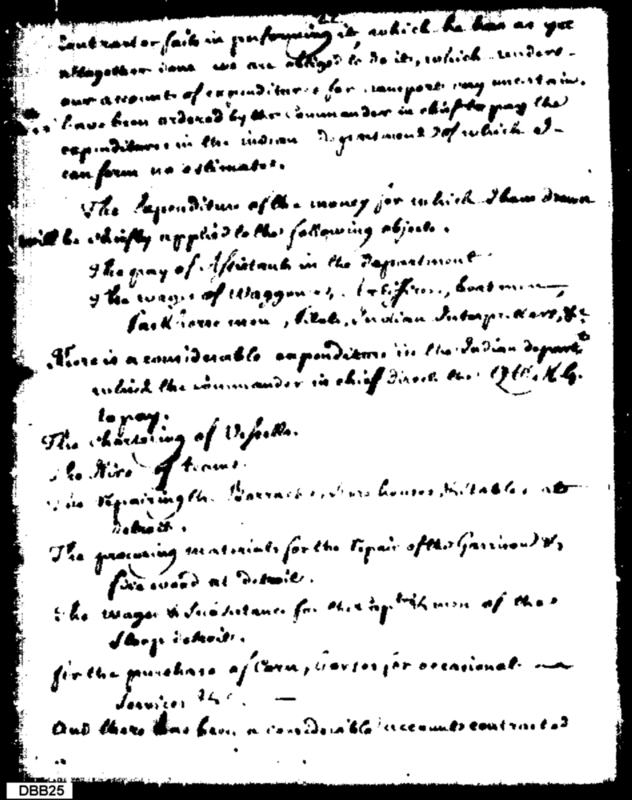 Contractor fails in performing it, which he has as yet
altogether done we are obliged to do it, which renders
our accounts of expenditures for transport very uncertain.
have been ordered by the Commander in chief to pay the
expenditures in the indian Department of which I
can form no estimates.
The Expenditure of the money for which I have drawn
will be chiefly applied to the following objects.
The pay of Assistants in the department
The wages of Waggoners, Artificers, boatmen,
Packhorse men, Pilots, Indian Interpreters, &c
There is a considerable expenditure in the Indian depart
which the Commander in chief directs the Q.M.G.
to pay.
The Chartering of Vessells.
The Hire of teams.
The repairing the Barracks, Storehouses, & Stables at
detroit.
The procuring materials for the repair of the Garrison &
fire wood at detroit.
The wages & Subsistance for the Capt & men of the
Sloop detroit.
for the purchase of Corn, horses for occasional
Services &c.
And there has been a considerable accounts contracted
DBB25